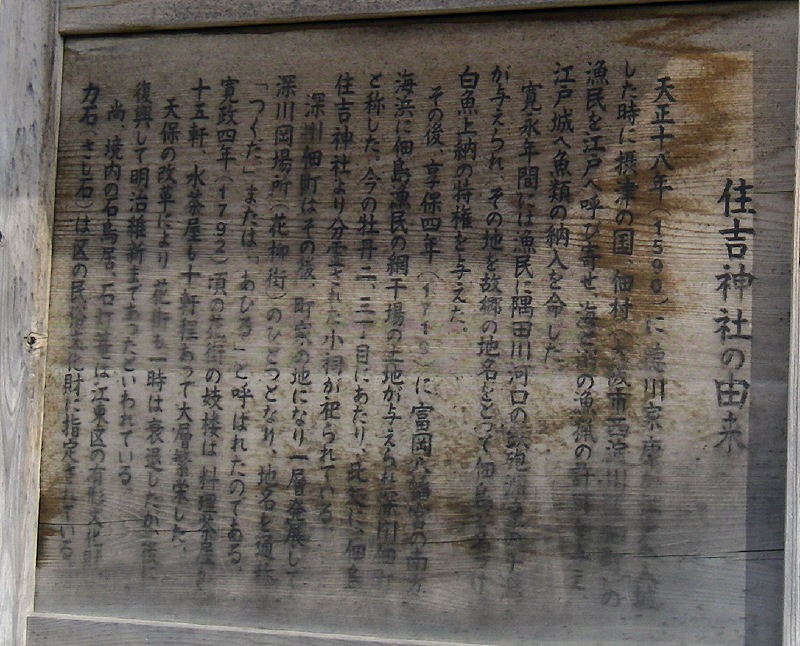 住吉神社の由来
天正十八年(1590)に徳川家康
した時に摂津の国、佃村(大阪市西淀川
漁民を江戸へ呼び寄せ、海と川の漁猟の許
江戸城へ魚類の納入を命した。
寛永年間には漁民に隅田川河口の鉄砲洲
が与えられ、その地を故郷の地名をとって佃島と名づけ
白魚上納の特権を与えた。
その後、享保四年(1719)に富岡八幡宮の南方
海浜に佃島漁民の網干場の土地が与えられ深川佃町
と称した。今の牡丹二、三丁目にあたり、此処に、佃島
住吉神社より分霊された小祠が祀られている。
深川佃町はその後、町家の地になり一層発展して
深川岡場所(花柳街)のひとつとなり、地名を通称
「つくだ」または、「あひる」と呼ばれたのである。
寛政四年(1792)頃の花街の妓楼は、料理茶屋が
十五軒、水茶屋も十軒程あって大層繁栄した。
天保の改革により花街も一時は衰退したが、
復興して明治維新まであったといわれている。
尚、境内の石鳥居、石灯籠は江東区の有形文化財
力石(さし石)は区の民俗文化財に指定されている。